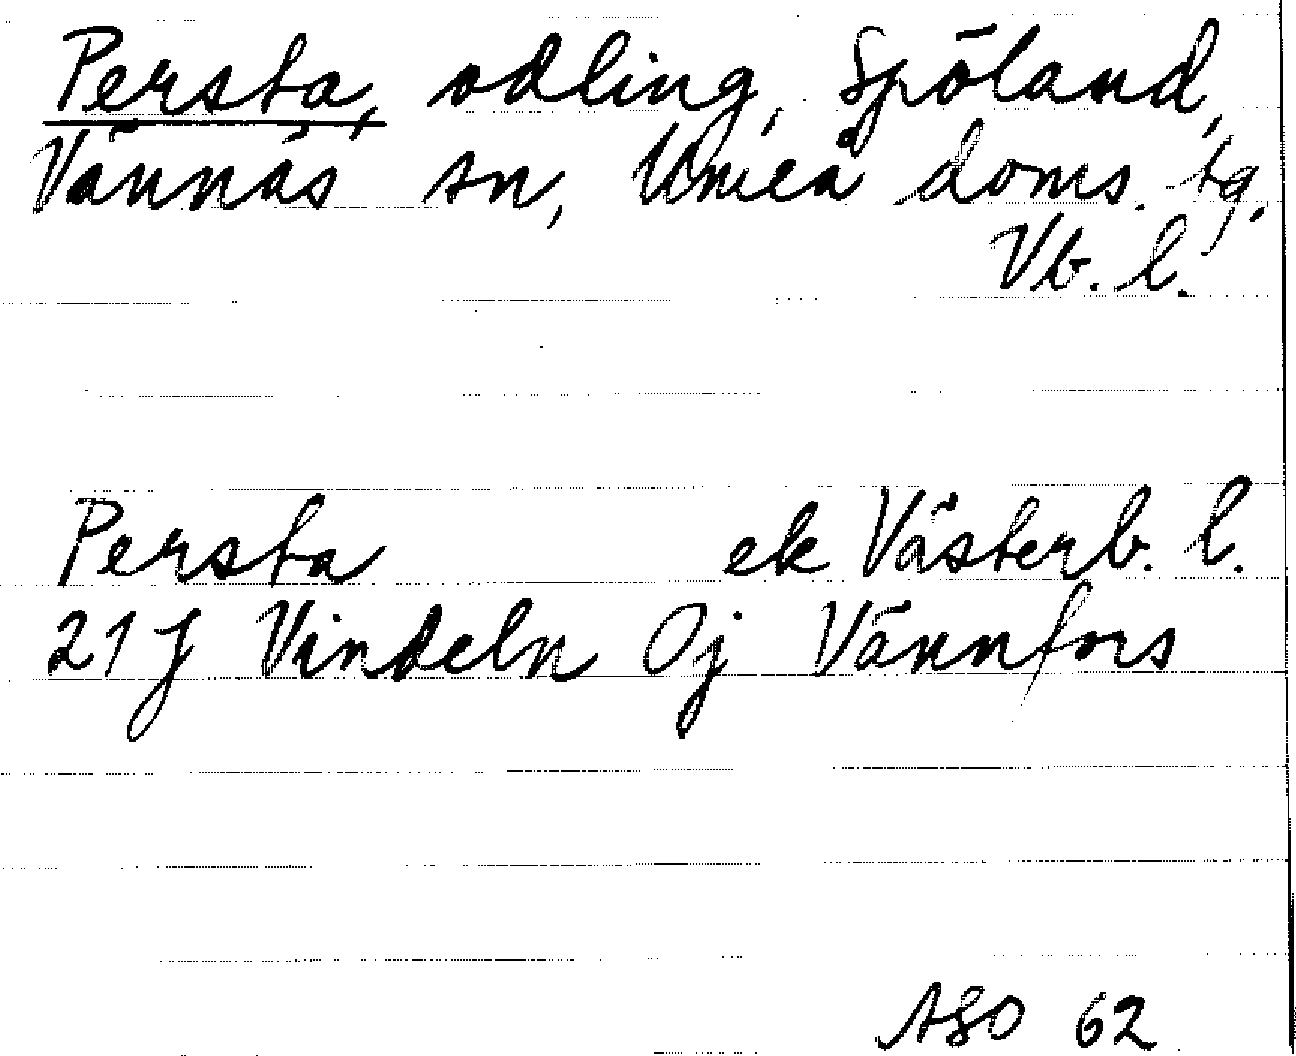 Persta, odling, Spöland,
Vännäs sn, Umeå doms. tg,
Vb. l.
Persta ek Västerb. l.
21 J Vindeln 0j Vännfors
ASO 62